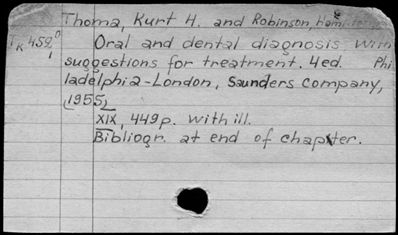 Thoma, Kurt H. and Robinson, Hamilton
TK 459,0 Oral and dental diagnosis with
1 suggestions for treatment. 4ed. Phi
ladelphia-London, Saunders company,
(1955)
XIX, 449p. with ill.
Bibliogr. at end of chapter.